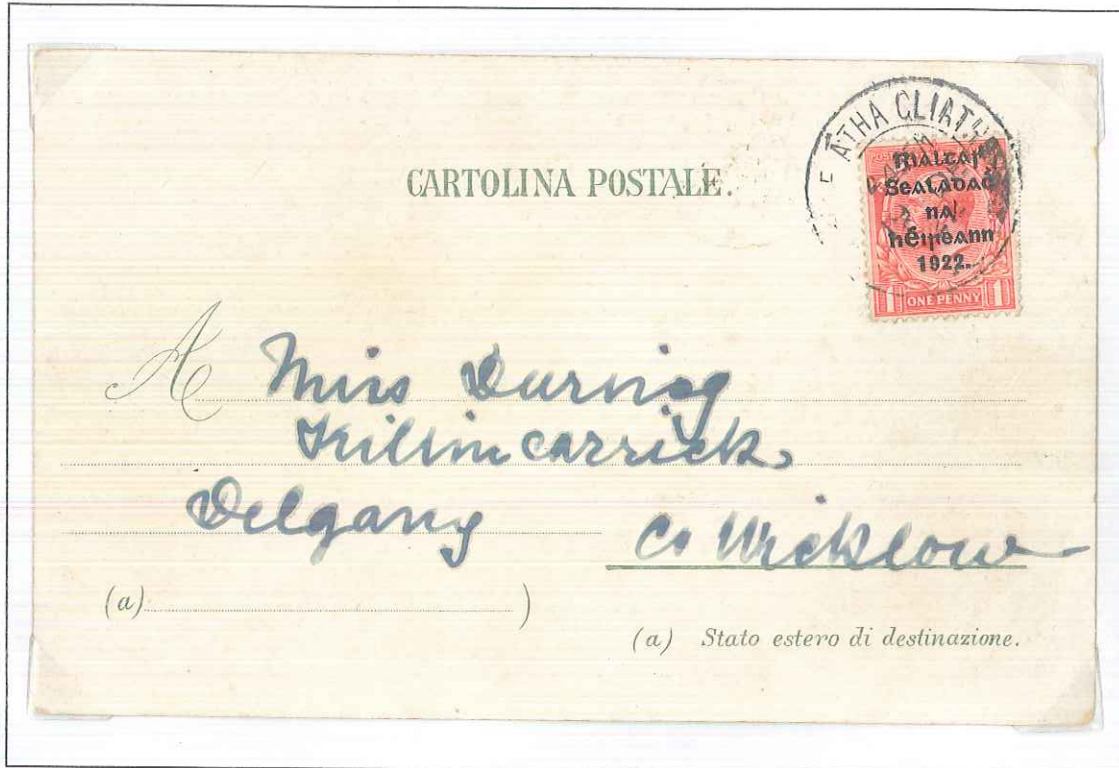 CARTOLINA POSTALE.
ATHA CLIATH
Rialtas
Sealadaċ
na
hÉireann
1922.
1 ONE PENNY 1
A Miss
Killincarrick
Delgany Co Wicklow
(a) )
(a) Stato estero di destinazione.